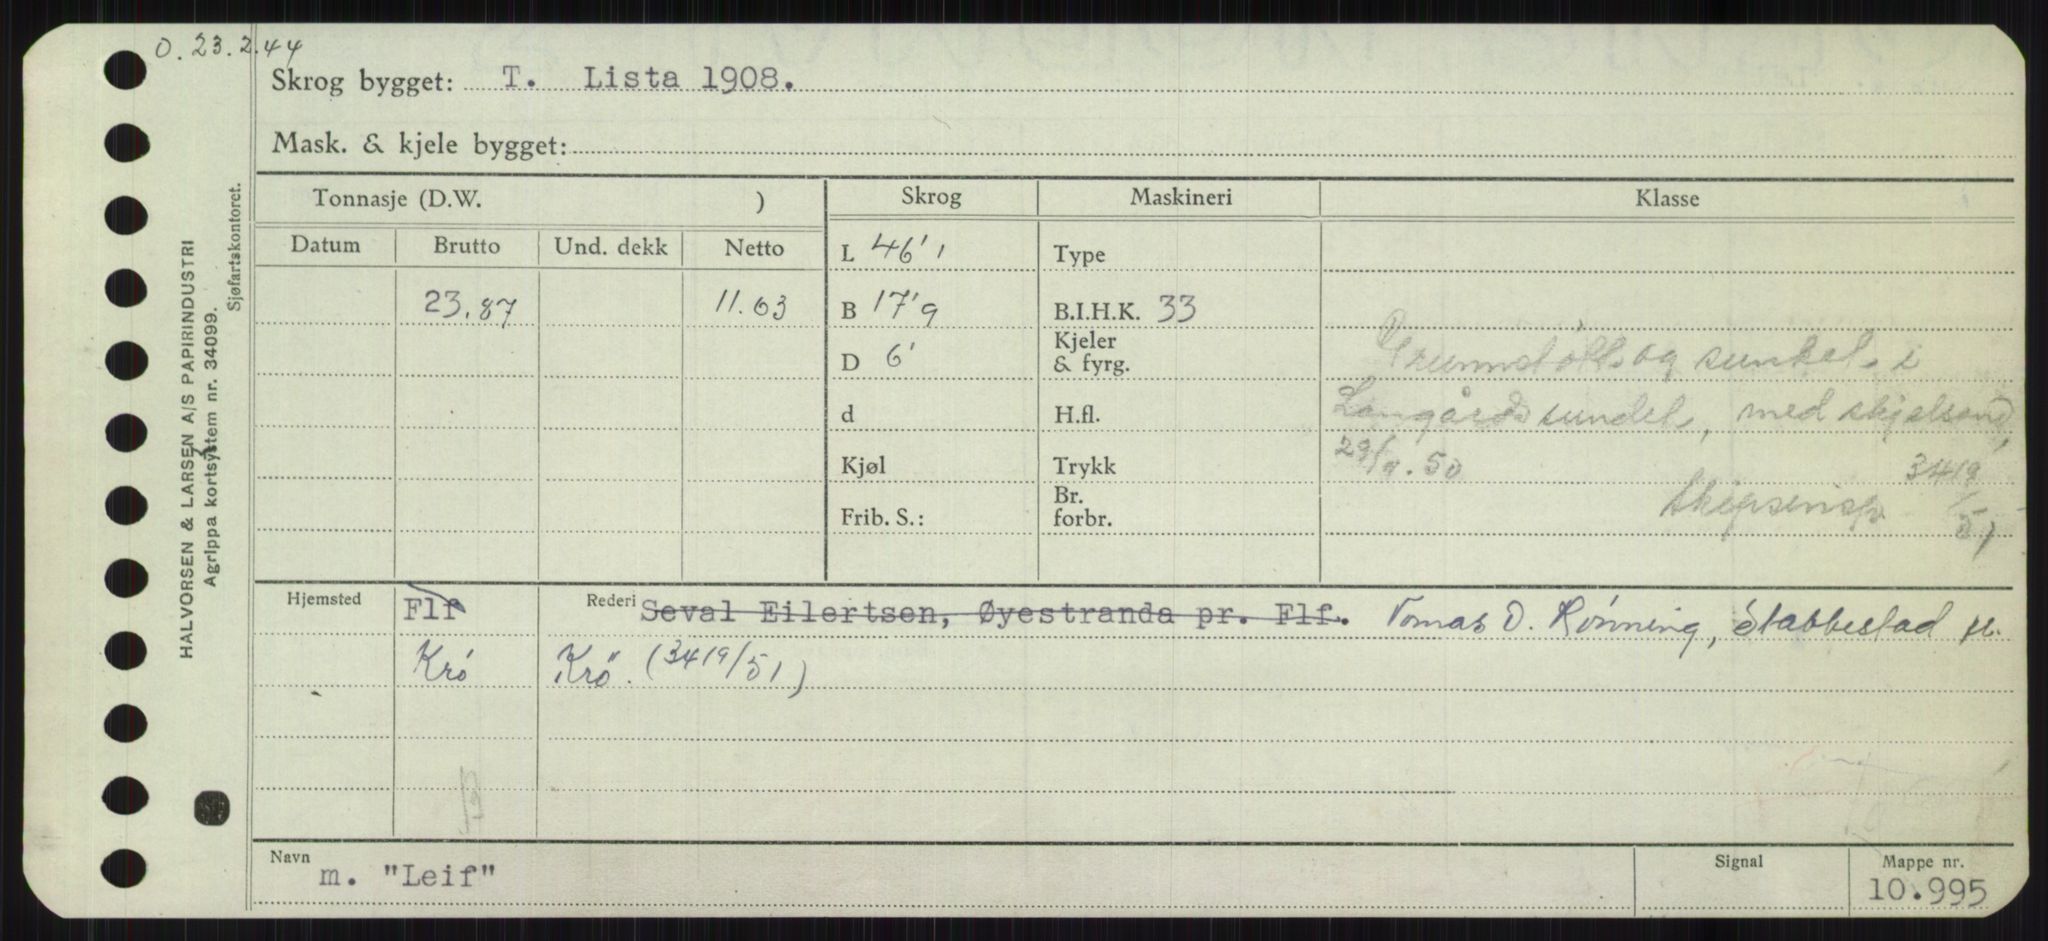 O. 23.2.44
Skrog bygget: T. Lista 1908.
Mask. & kjele bygget:
Tonnasje (D.W. )
Skrog
Maskineri
Klasse
Datum
Brutto
Und. dekk
Netto
L 46'1
Type
23,87
11.63
B 17'9
B.I.H.K. 33
D 6'
Kjeler
& fyrg.
Grunnstøtt og sunket i
d
H.fl.
Langårdsundet, med skjelsand,
Kjøl
Trykk
29/9.50
3419/51
Frib. S.:
Br.
forbr.
Skipsinsp.
Hjemsted
Flf
Rederi
Seval Eilertsen, Øyestranda pr. Flf. Tomas D. Rønning, Stabbestad pr.
Krö
Krö. (3419/51)
Navn
m. "Leif"
Signal
Mappe nr.
10.995
HALVORSEN & LARSEN A/S PAPIRINDUSTRI
Agrippa kortsystem nr. 34099.
Sjøfartskontoret.